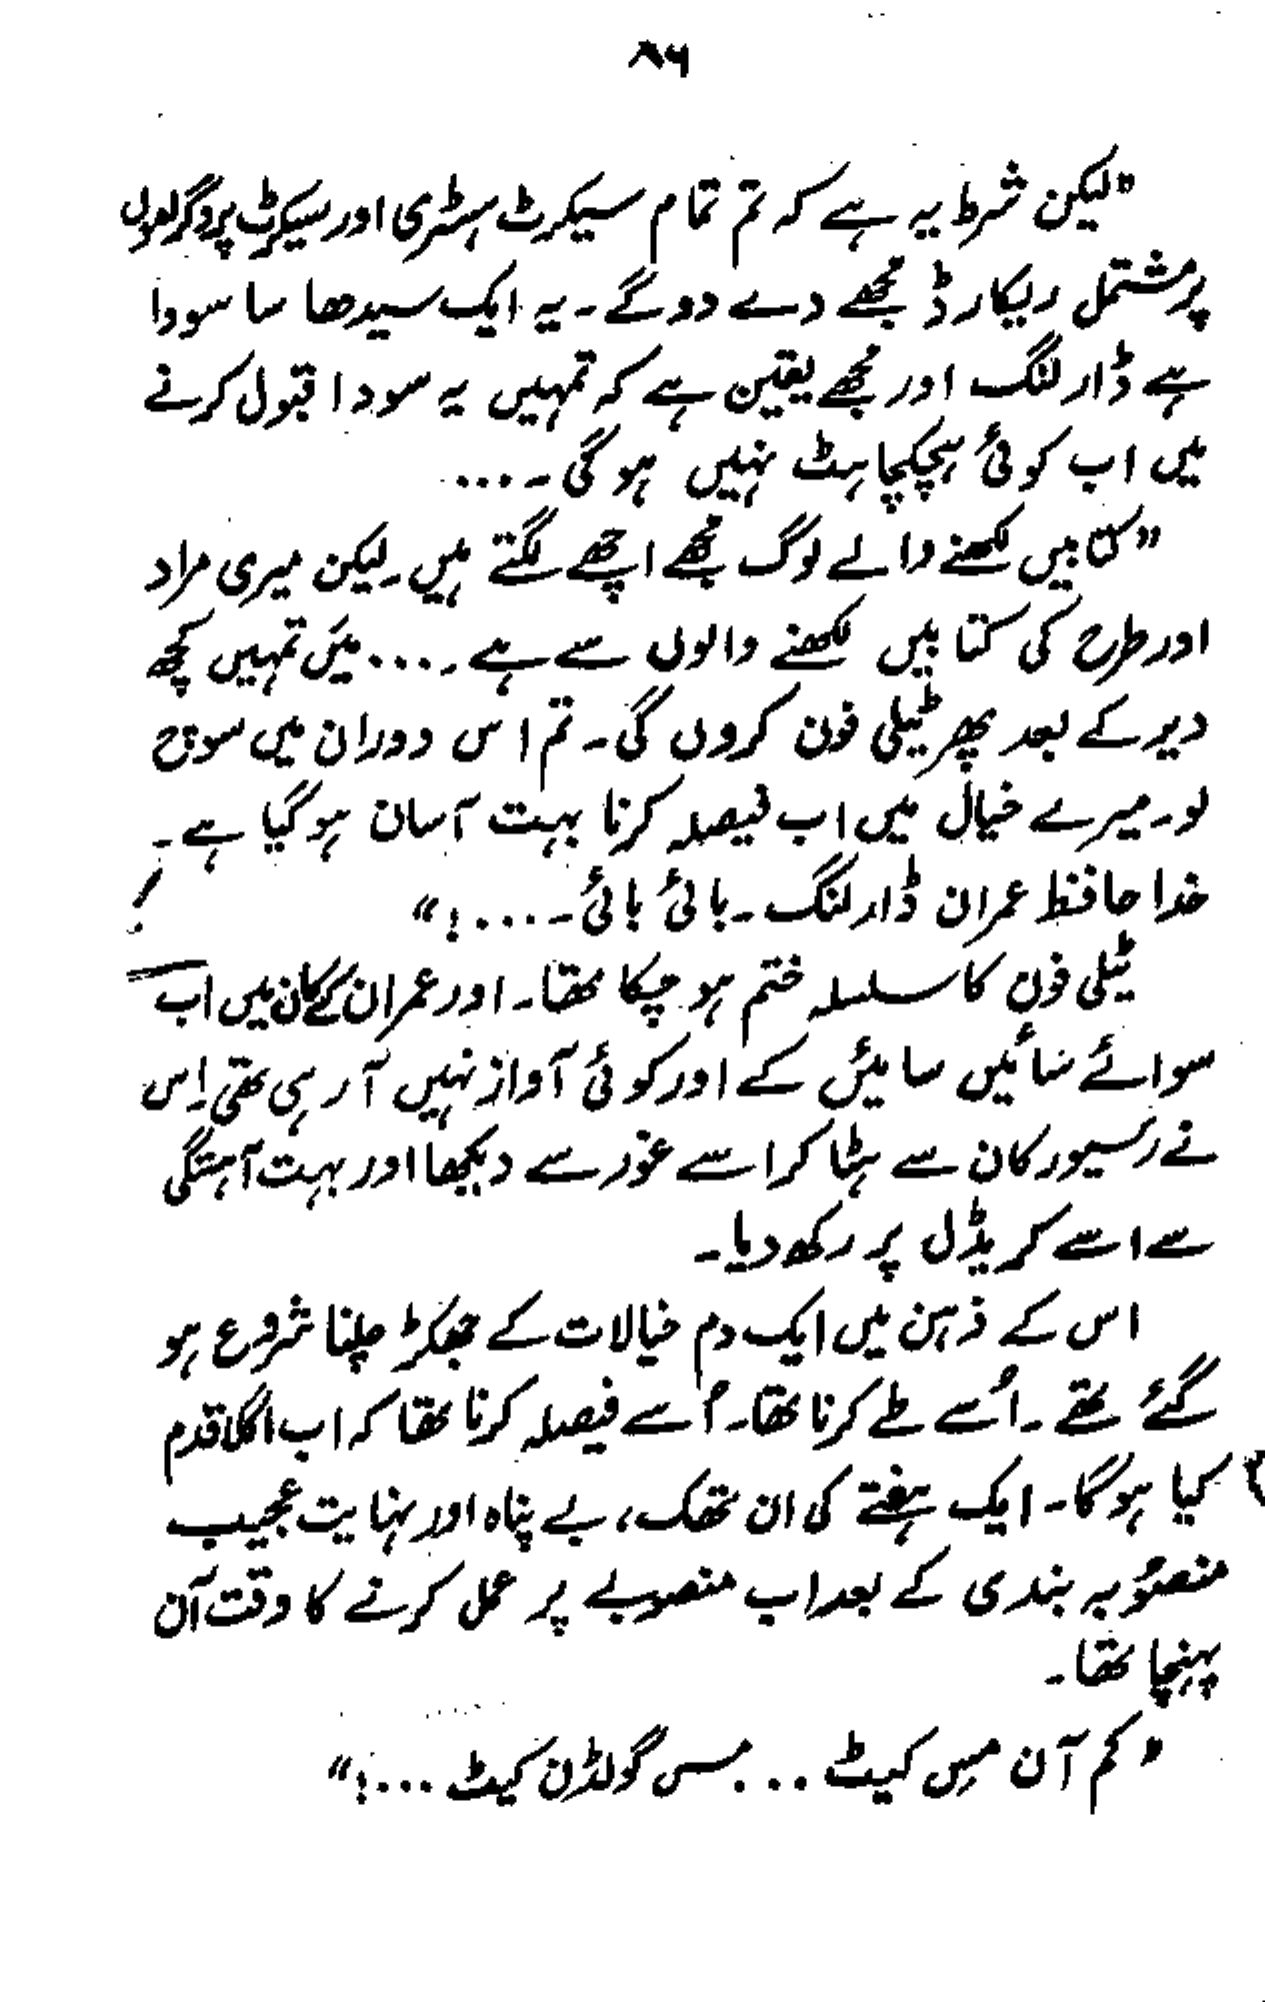 ۸۶
"لیکن شرط یہ ہے کہ تم تمام سیکرٹ ہسٹری اور سیکرٹ پروگراموں
پر مشتمل ریکارڈ مجھے دے دو گے۔ یہ ایک سیدھا سا سودا
ہے ڈارلنگ اور مجھے یقین ہے کہ تمہیں یہ سودا قبول کرنے
میں اب کوئی ہچکچاہٹ نہیں ہو گی۔...
"کتابیں لکھنے والے لوگ مجھے اچھے لگتے ہیں۔ لیکن میری مراد
اور طرح کی کتابیں لکھنے والوں سے ہے۔... میں تمہیں کچھ
دیر کے بعد پھر ٹیلی فون کروں گی۔ تم اس دوران میں سوچ
لو۔ میرے خیال میں اب فیصلہ کرنا بہت آسان ہو گیا ہے۔
خدا حافظ عمران ڈارلنگ۔ بائی بائی۔...!"
ٹیلی فون کا سلسلہ ختم ہو چکا تھا۔ اور عمران کے کان میں اب
سوائے سائیں سائیں کے اور کوئی آواز نہیں آ رہی تھی اِس
نے رسیور کان سے ہٹا کر اسے غور سے دیکھا اور بہت آہستگی
سے اسے کریڈل پر رکھ دیا۔
اس کے ذہن میں ایک دم خیالات کے جھکڑ چلنا شروع ہو
گئے تھے۔ اُسے طے کرنا تھا۔ اُسے فیصلہ کرنا تھا کہ اب اگلا قدم
کیا ہو گا۔ ایک ہفتے کی ان تھک، بے پناہ اور نہایت عجیب
منصوُبہ بندی کے بعد اب منصوبے پر عمل کرنے کا وقت آن
پہنچا تھا۔
"کم آن مِس کیٹ ... مس گولڈن کیٹ ...!"